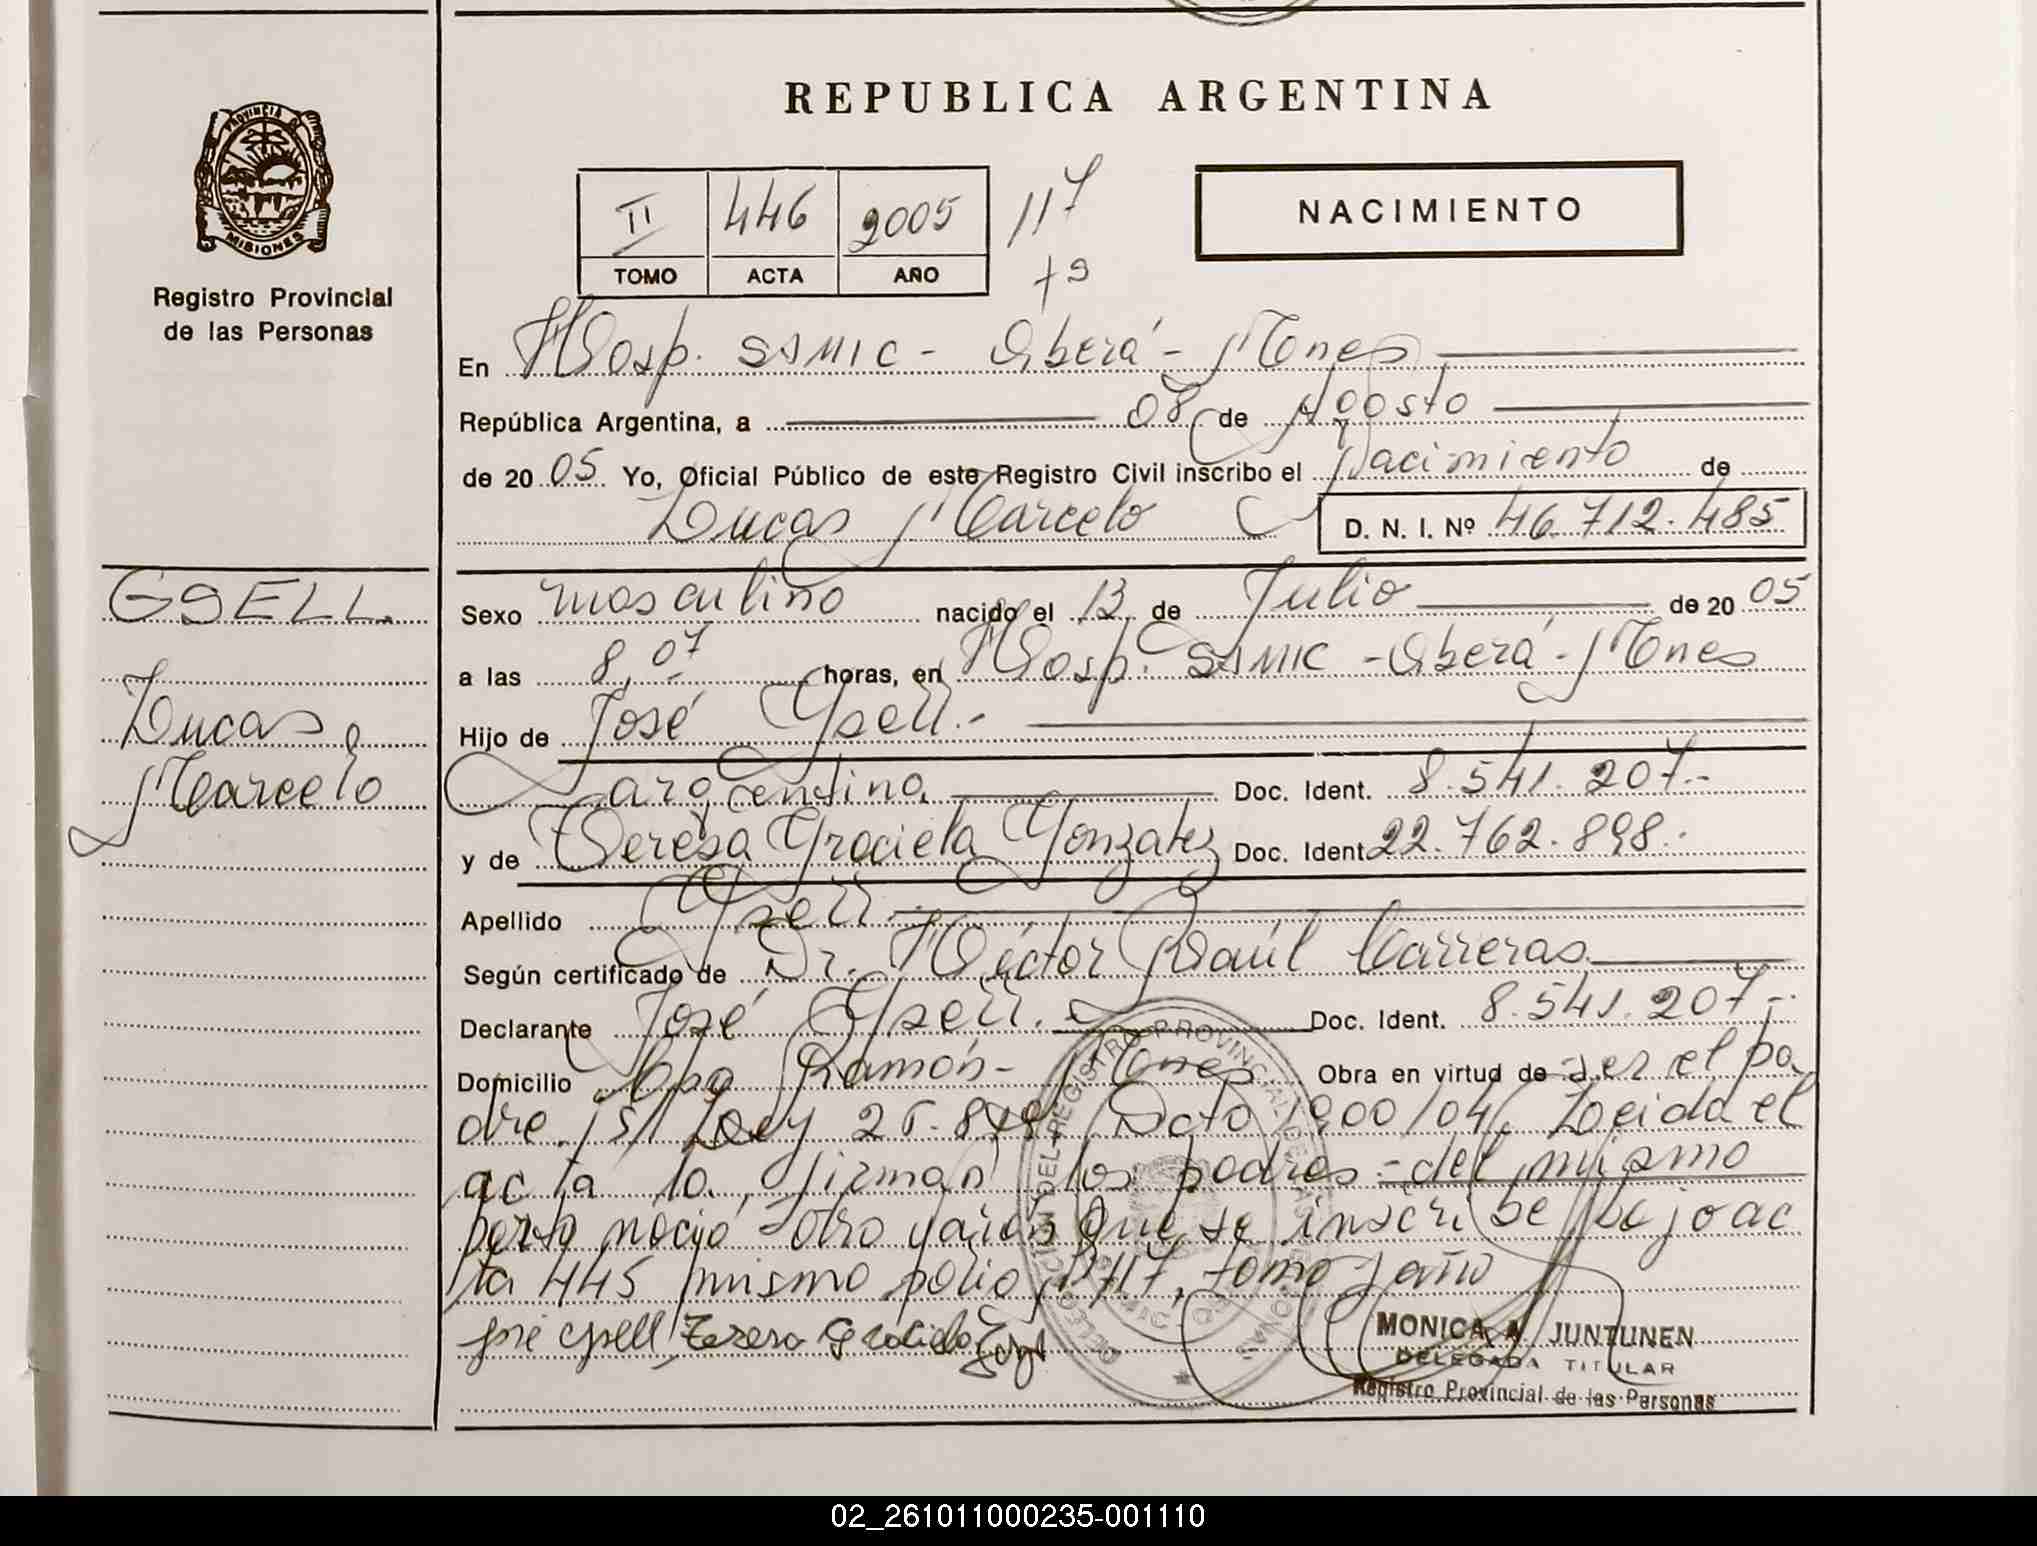 REPUBLICA ARGENTINA
PROVINCIA DE
MISIONES
Registro Provincial
de las Personas
II 446 2005 117
TOMO ACTA AÑO
NACIMIENTO
En Hosp. SAMIC - Oberá - Mnes
República Argentina, a 08 de Agosto
de 2005 Yo, Oficial Público de este Registro Civil inscribo el Nacimiento de
Lucas Marcelo D. N. I. Nº 46.712.485
GSELL
Lucas
Marcelo
Sexo masculino nacido el 13 de Julio de 2005
a las 8,07 horas, en Hosp. SAMIC - Oberá - Mnes
Hijo de José Gsell.-
argentino Doc. Ident. 8.541.207.-
y de Teresa Graciela Gonzalez Doc. Ident. 22.762.898.
Apellido Gsell
Según certificado de Dr. Héctor Raúl Carreras
Declarante José Gsell. Doc. Ident. 8.541.207-.
Domicilio Ramón - Mnes Obra en virtud de ser el pa
dre. S/ Ley Dcto 1900/04, Leida el
acta la firman los padres - del mismo
parto nació otro varón que se inscribe bajo ac
ta 445 mismo folio Nº 117, tomo y año
José Gsell Teresa Graciela
MONICA A. JUNTUNEN
DELEGADA TITULAR
Registro Provincial de las Personas
02_261011000235-001110